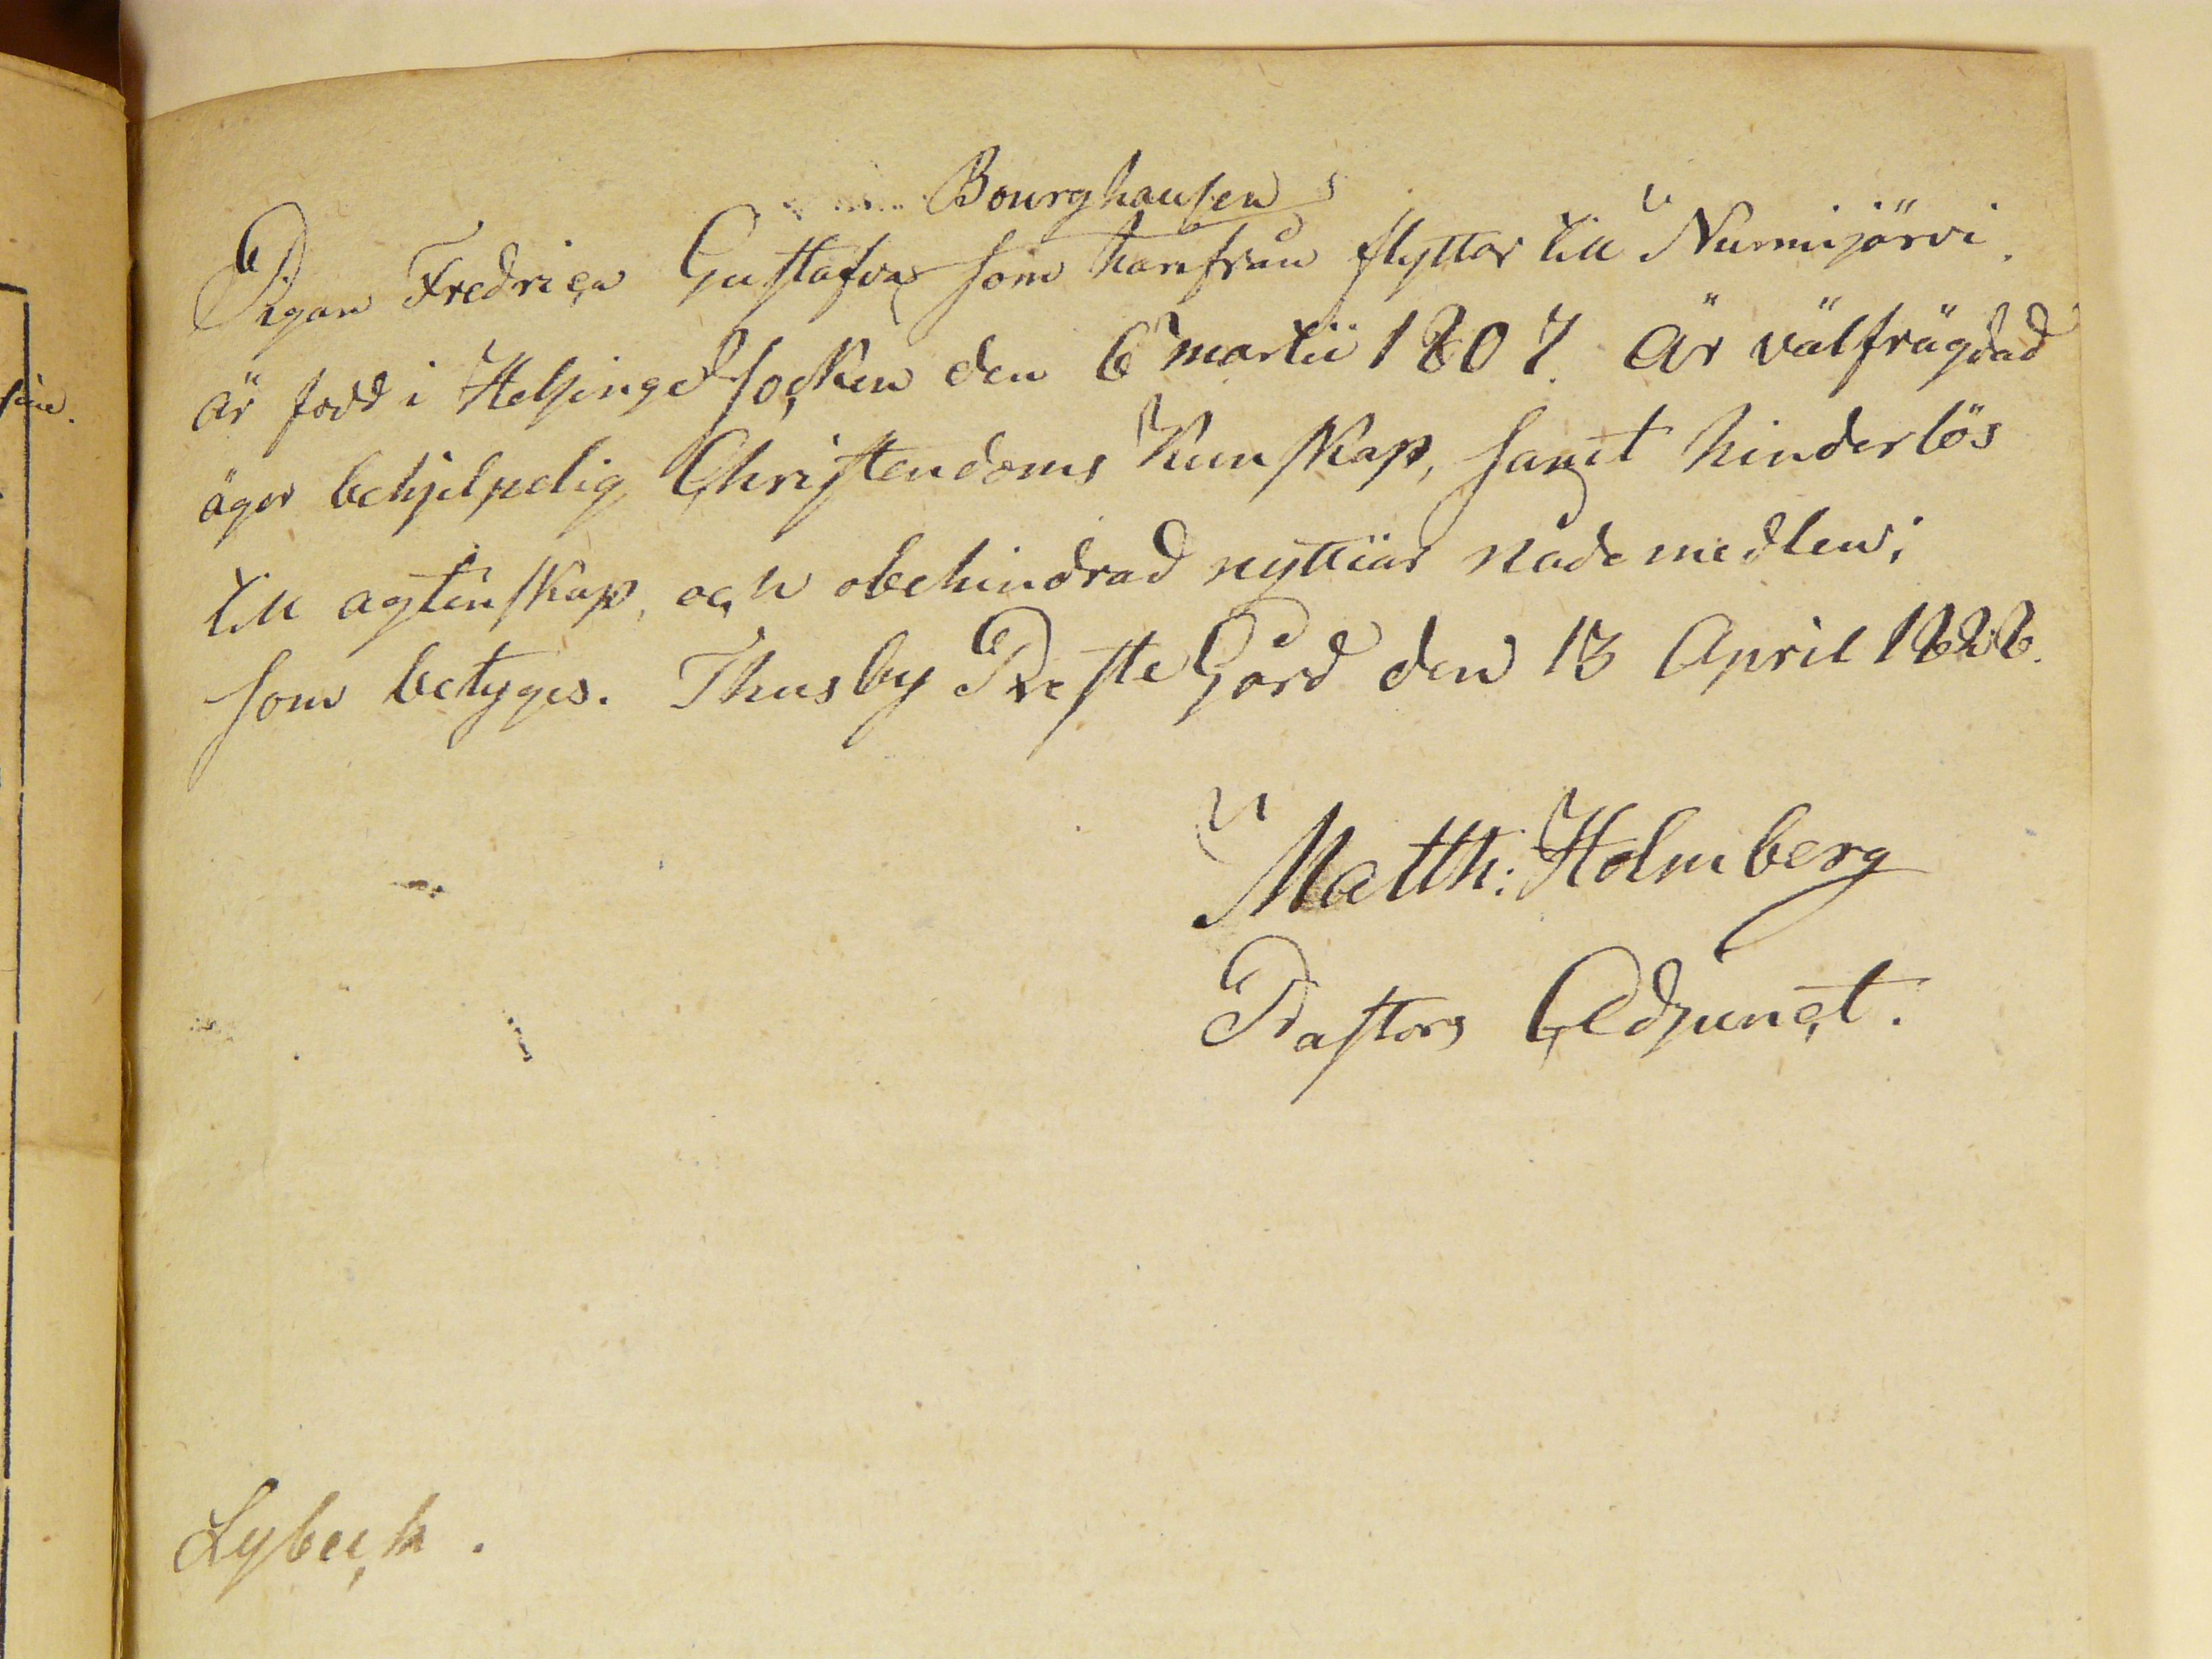 Bourghausen
Pigan Fredrica Gustafva som härifrån flyttar till Nurmijärvi.
är född i Helsinge Socken den 6 martii 1807. är välfrägdad
äger behjelpelig Christendoms Kunskap, samt hinderlös
till agtenskap, och obehindrad nyttiar nådemedlen;
som betyges. Thusby PresteGård den 13 April 1828.
Matth: Holmberg
Pastors Adjunct.
Lybeck.